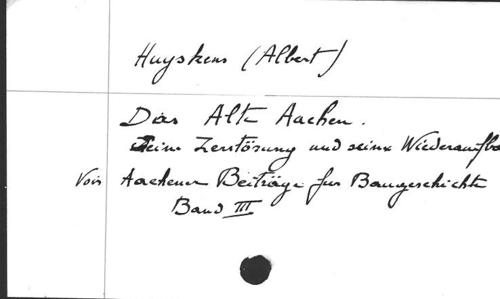 Huyskens (Albert)
Das Alte Aachen.
Seine Zerstörung und seine Wiederaufba
Voir Aachener Beiträge für Baugeschichte
Band III